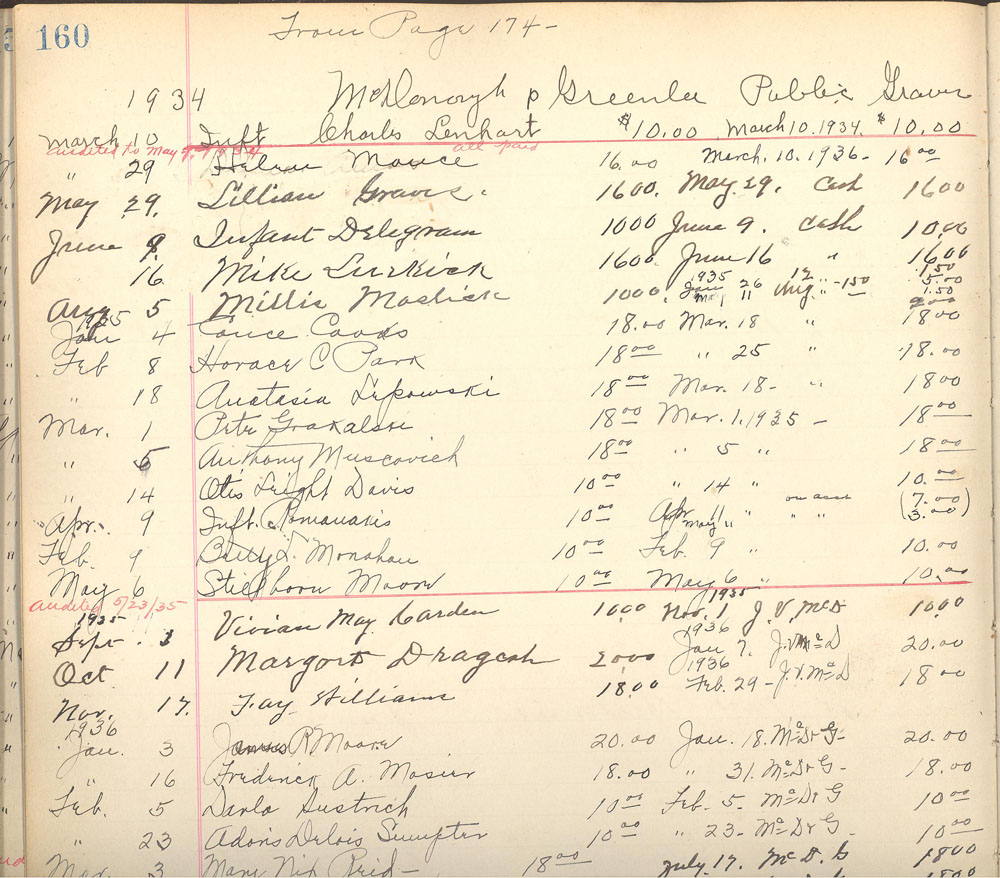 160
From Page 174-
1934 McDonough & Greenlee Public Graves
March 10 Inft. Charles Lenhart $10.00 March 10. 1934. $10.00
audited to May all paid
" 29 Helen Mance 16.00 March. 10. 1936- 16 00
May 29. Lillian Graves. 1600. May. 29. Cash 1600
June 9. Infant Delegram 1000 June 9. Cash 1000
16 Mike 1600 June 16 " 1600
Aug 5 Millie 1000. 1935 Jan 26 May 11 Aug 12 " -150 1.50 5.00 1.50
1935
Jan 4 Coods 18.00 Mar. 18 " 1800
Feb 8 Horace C Park 18 00 " 25 " 18.00
" 18 Anatasia Lipowski 18 00 Mar. 18- " 1800
Mar. 1 Pete 18 00 Mar. 1. 1935 - 18 00
" 5 Anthony Muscovich 18 00 " 5 " 18 00
" 14 Otis Leight Davis 10 00 " 14 " 10.00
Apr. 9 Inft. Romanakis 10 00 Apr 11 " on acct (7.00
May " " " 3.00)
Feb. 9 Billy L. Monahan 10 00 Feb. 9 " 10.00
May 6 Stillborn Moore 10 00 May 6 " 10.00
audited 5/23/35
1935 1935
Sept 3 Vivian May Carden 1000 Nov. 1 J. V. McD 1000
Oct 11 Margort Dragesh 2000 1936 Jan 7. J.V. McD 20.00
Nov. 17. Fay Williams 18.00 1936 Feb. 29 - J.V. McD 18 00
1936
Jan. 3 James R Moore 20.00 Jan. 18. McD & G- 20.00
" 16 Frederick A. Mosier 18.00 " 31. McD & G- 18.00
Feb. 5 Darlo Sustrich 10 00 Feb. 5- McD & G 10 00
" 23 Adoris Delois Sumpter 10 00 " 23- McD & G- 10 00
Mar. 3 Mary Nix Reid- 18 00 July. 17. McD. G 1800